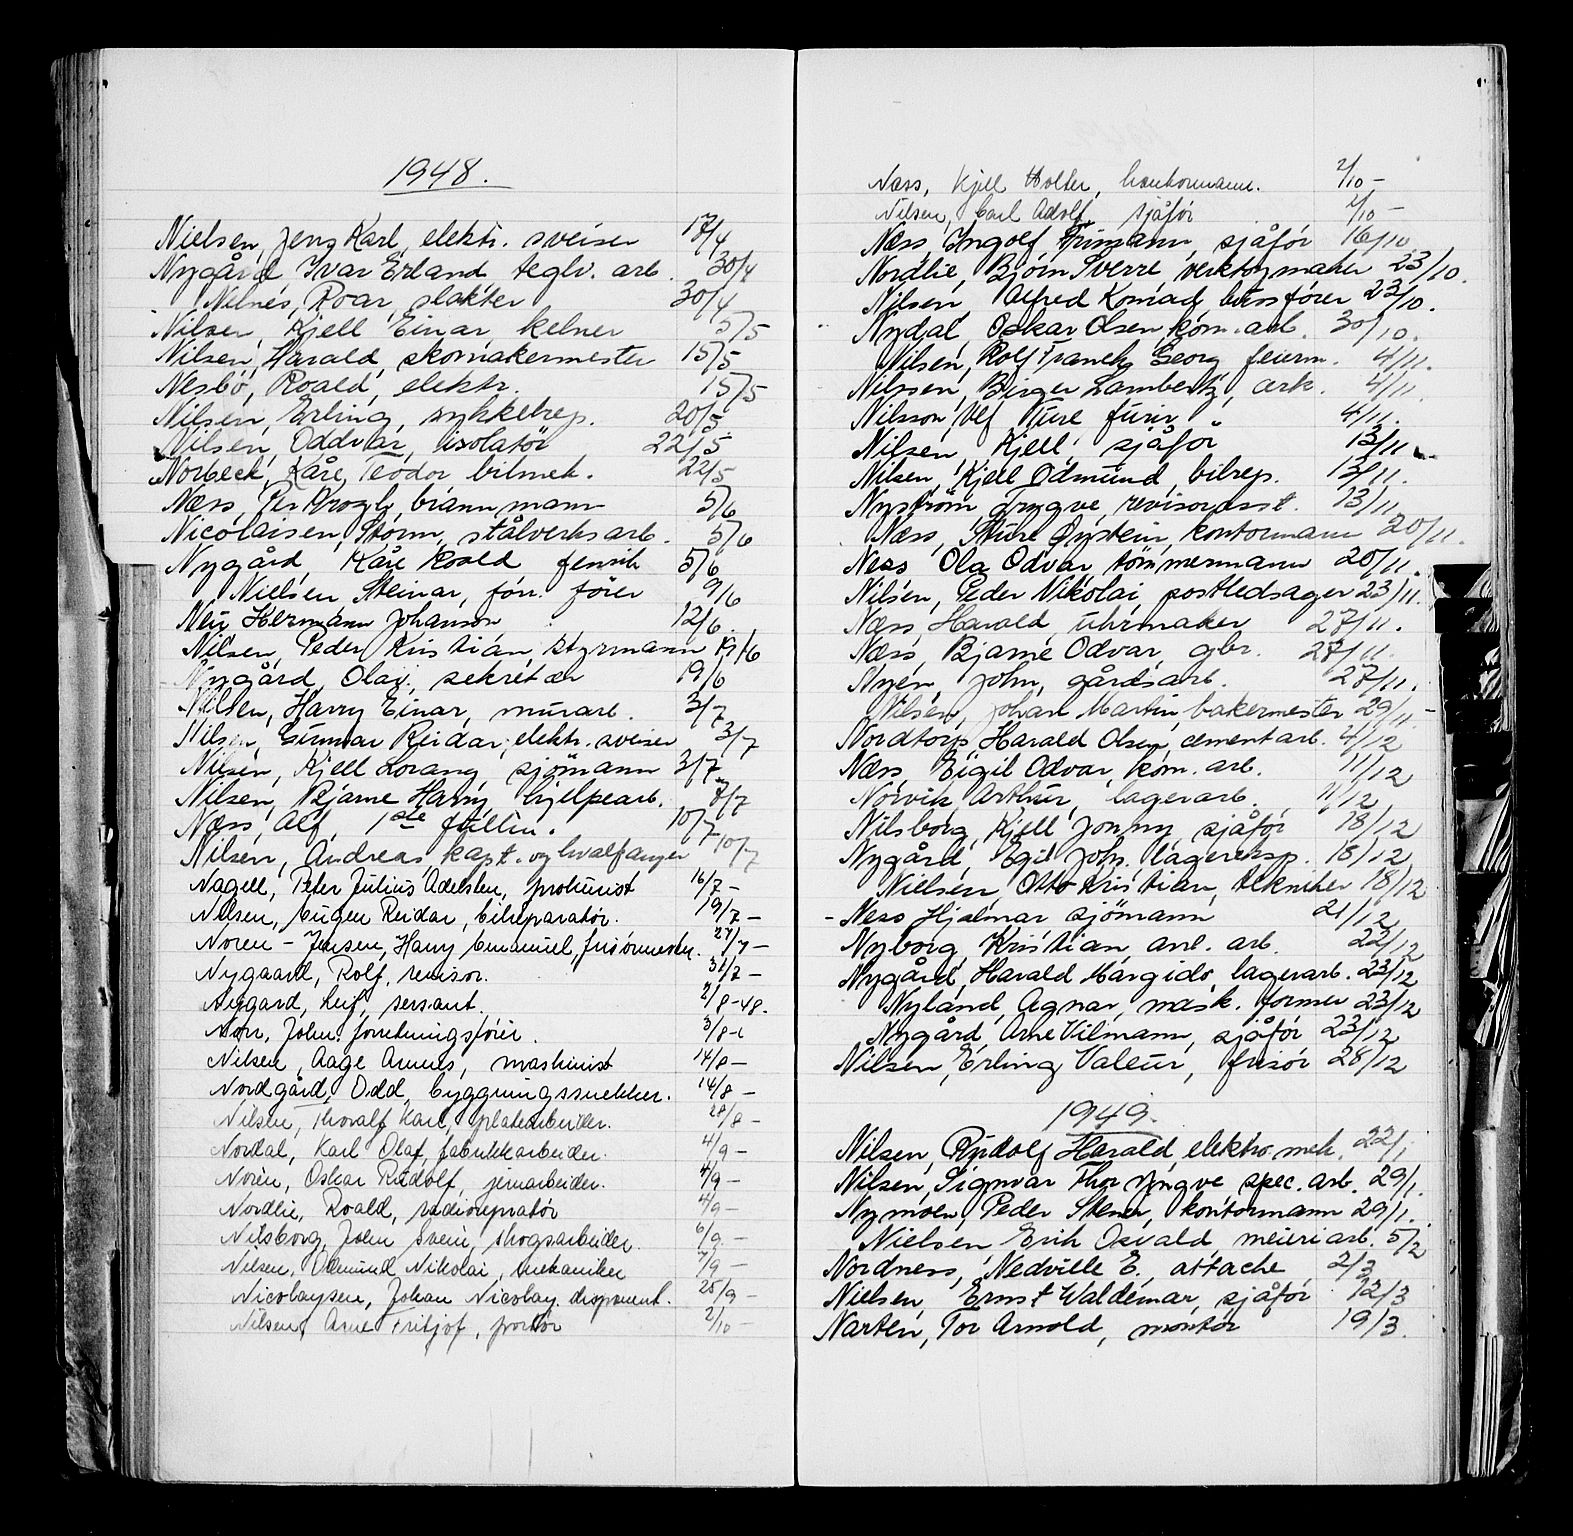 1948.
Nielsen, Jens Karl, elektr. sveiser 17/4
Nygård Ivar Erland teglv. arb. 30/4
Nilnes, Roar, slakter 30/4
Nilsen, Kjell Einar kelner 5/5
Nilsen, Harald, skomakermester 15/5
Nesbö, Roald, elektr. 15/5
Nilsen, Erling, sykkelrep. 20/5
Nilsen, Oddvar, isolatör 22/5
Norbeck, Kåre Teodor bilmek. 22/5
Næss, Per Krogh, brannmann 5/6
Nicolaisen, Storm, stålverksarb. 5/6
Nygård, Kåre Roald fenrik 5/6
Nielsen Steinar, forr. förer 9/6
Ney Hermann Johanson 12/6.
Nilsen, Peder Kristian, styrmann 19/6
Nygård, Olav, sekretær 19/6
Nilsen, Harry Einar, murarb. 3/7
Nilsen, Gunnar Reidar, elektr. sveiser 3/7
Nilsen, Kjell Lorang, sjömann 3/7
Nilsen, Bjarne Harry, hjelpearb. 7/7
Næss, Alf, 1ste fullm. 10/7
Nilsen, Andreas kapt. og hvalfanger 10/7
Nagell, Peter Julius Adelsten, prokurist 16/7 –
Nilsen, Eugen Reidar, bilreparatør. 19/7 –
Noren - Jensen, Harry Emanuel, frisørmester. 27/7 –
Nygaard, Rolf, revisor. 31/7 –
Nygard, Leif, sersant. 2/8-48.
Norr, John forretningsfører. 3/8-
Nilsen, Aage Annæs, maskinist 14/8 –
Nordgård, Odd, bygningssnekker. 14/8 –
Nilsen, Thoralf Karl, platearbeider. 28/8 –
Nordal, Karl Olaf, fabrikkarbeider. 4/9 –
Noren, Oskar Rudolf, jernarbeider. 4/9 –
Nordlie, Roald, radioreparatør 4/9 –
Nilsborg, John Svein, skogsarbeider. 6/9. –
Nilsen, Odmund Nikolai, mekaniker 7/9 –
Nicolaysen, Johan Nicolay. disponent. 25/9 –
Nilsen, Arne Fritjof, portør 2/10 –
Næss, Kjell Holter, kontormann. 2/10 –
Nilsen, Carl Adolf, sjåför 2/10 –
Næss, Ingolf Frimann, sjåför 16/10
Nordlie, Bjørn Sverre, verktöymaker 23/10.
Nilsen, Alfred Konrad, bussfører 23/10.
Nydal, Oskar Olsen, kom. arb. 30/10.
Nilsen, Rolf Franck Georg feierm. 4/11.
Nilssen, Birger Lambertz, ark. 4/11.
Nilsson Ulf Ture furir 4/11.
Nilsen, Kjell, sjåför 13/11
Nilsen, Kjell Odmund, bilrep. 13/11.
Nyström, Trygve, revisorasst. 13/11
Næss, Sture Øystein, kontormann 20/11.
Ness Ola Odvar, tömmermann 20/11.
Nilsen, Peder Nikolai, postledsager 23/11.
Næss, Harald, uhrmaker 27/11.
Næss, Bjarne Odvar, gbr. 27/11.
Nyen, John, gårdsarb. 27/11.
Nilsen, Johan Martin, bakermester 29/11 –
Nordtorp, Harald Olsen, cementarb. 4/12
Næss, Eigil Odvar, kom. arb. 11/12
Norvik Arthur, lagerarb. 11/12
Nilsborg, Kjell Jonny, sjåför 18/12
Nygård, Egil Joh. lagereksp. 18/12
Nielsen, Otto Kristian, tekniker 18/12
– Ness Hjalmar sjömann 21/12
Nyborg, Kristian, anl. arb. 22/12
Nygård, Harald Margido, lagerarb. 23/12
Nyland, Agnar, mask. former 23/12
Nygård, Arne Vilmann, sjåför 23/12
Nilsen, Erling Valeur, frisör 28/12
1949.
Nilsen, Rudolf Harald, elektro. mek. 22/1
Nilsen, Sigmar Thor Yngve spec. arb. 29/1.
Nymoen, Peder Stener, kontormann 29/1.
Nielsen Erik Osvald meieriarb. 5/2
Nordness, Nedville E., attache 2/3
Nielsen, Ernst Waldemar, sjåför 12/3
Narten, Tor Arnold, montör 19/3.